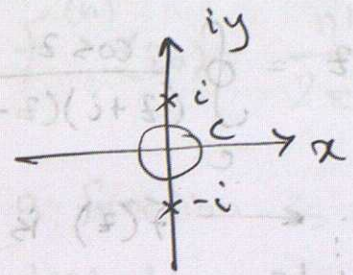 iy
i
C
x
-i